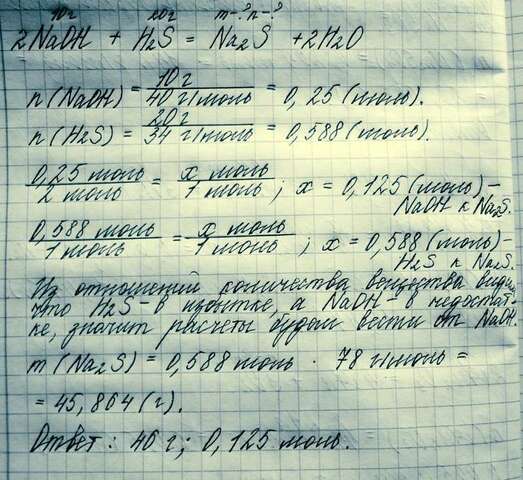 10г 20г m-? n-?
2NaOH + H₂S = Na₂S + 2H₂O
n(NaOH) = 10 г / 40 г/моль = 0,25 (моль).
n(H₂S) = 20 г / 34 г/моль = 0,588 (моль).
0,25 моль / 2 моль = x моль / 1 моль ; x = 0,125 (моль) -
NaOH к Na₂S.
0,588 моль / 1 моль = x моль / 1 моль ; x = 0,588 (моль) -
H₂S к Na₂S.
Из отношений количества вещества видно,
что H₂S - в избытке, а NaOH - в недостат-
ке, значит расчеты будем вести от NaOH.
m(Na₂S) = 0,588 моль · 78 г/моль =
= 45,864 (г).
Ответ: 46 г; 0,125 моль.